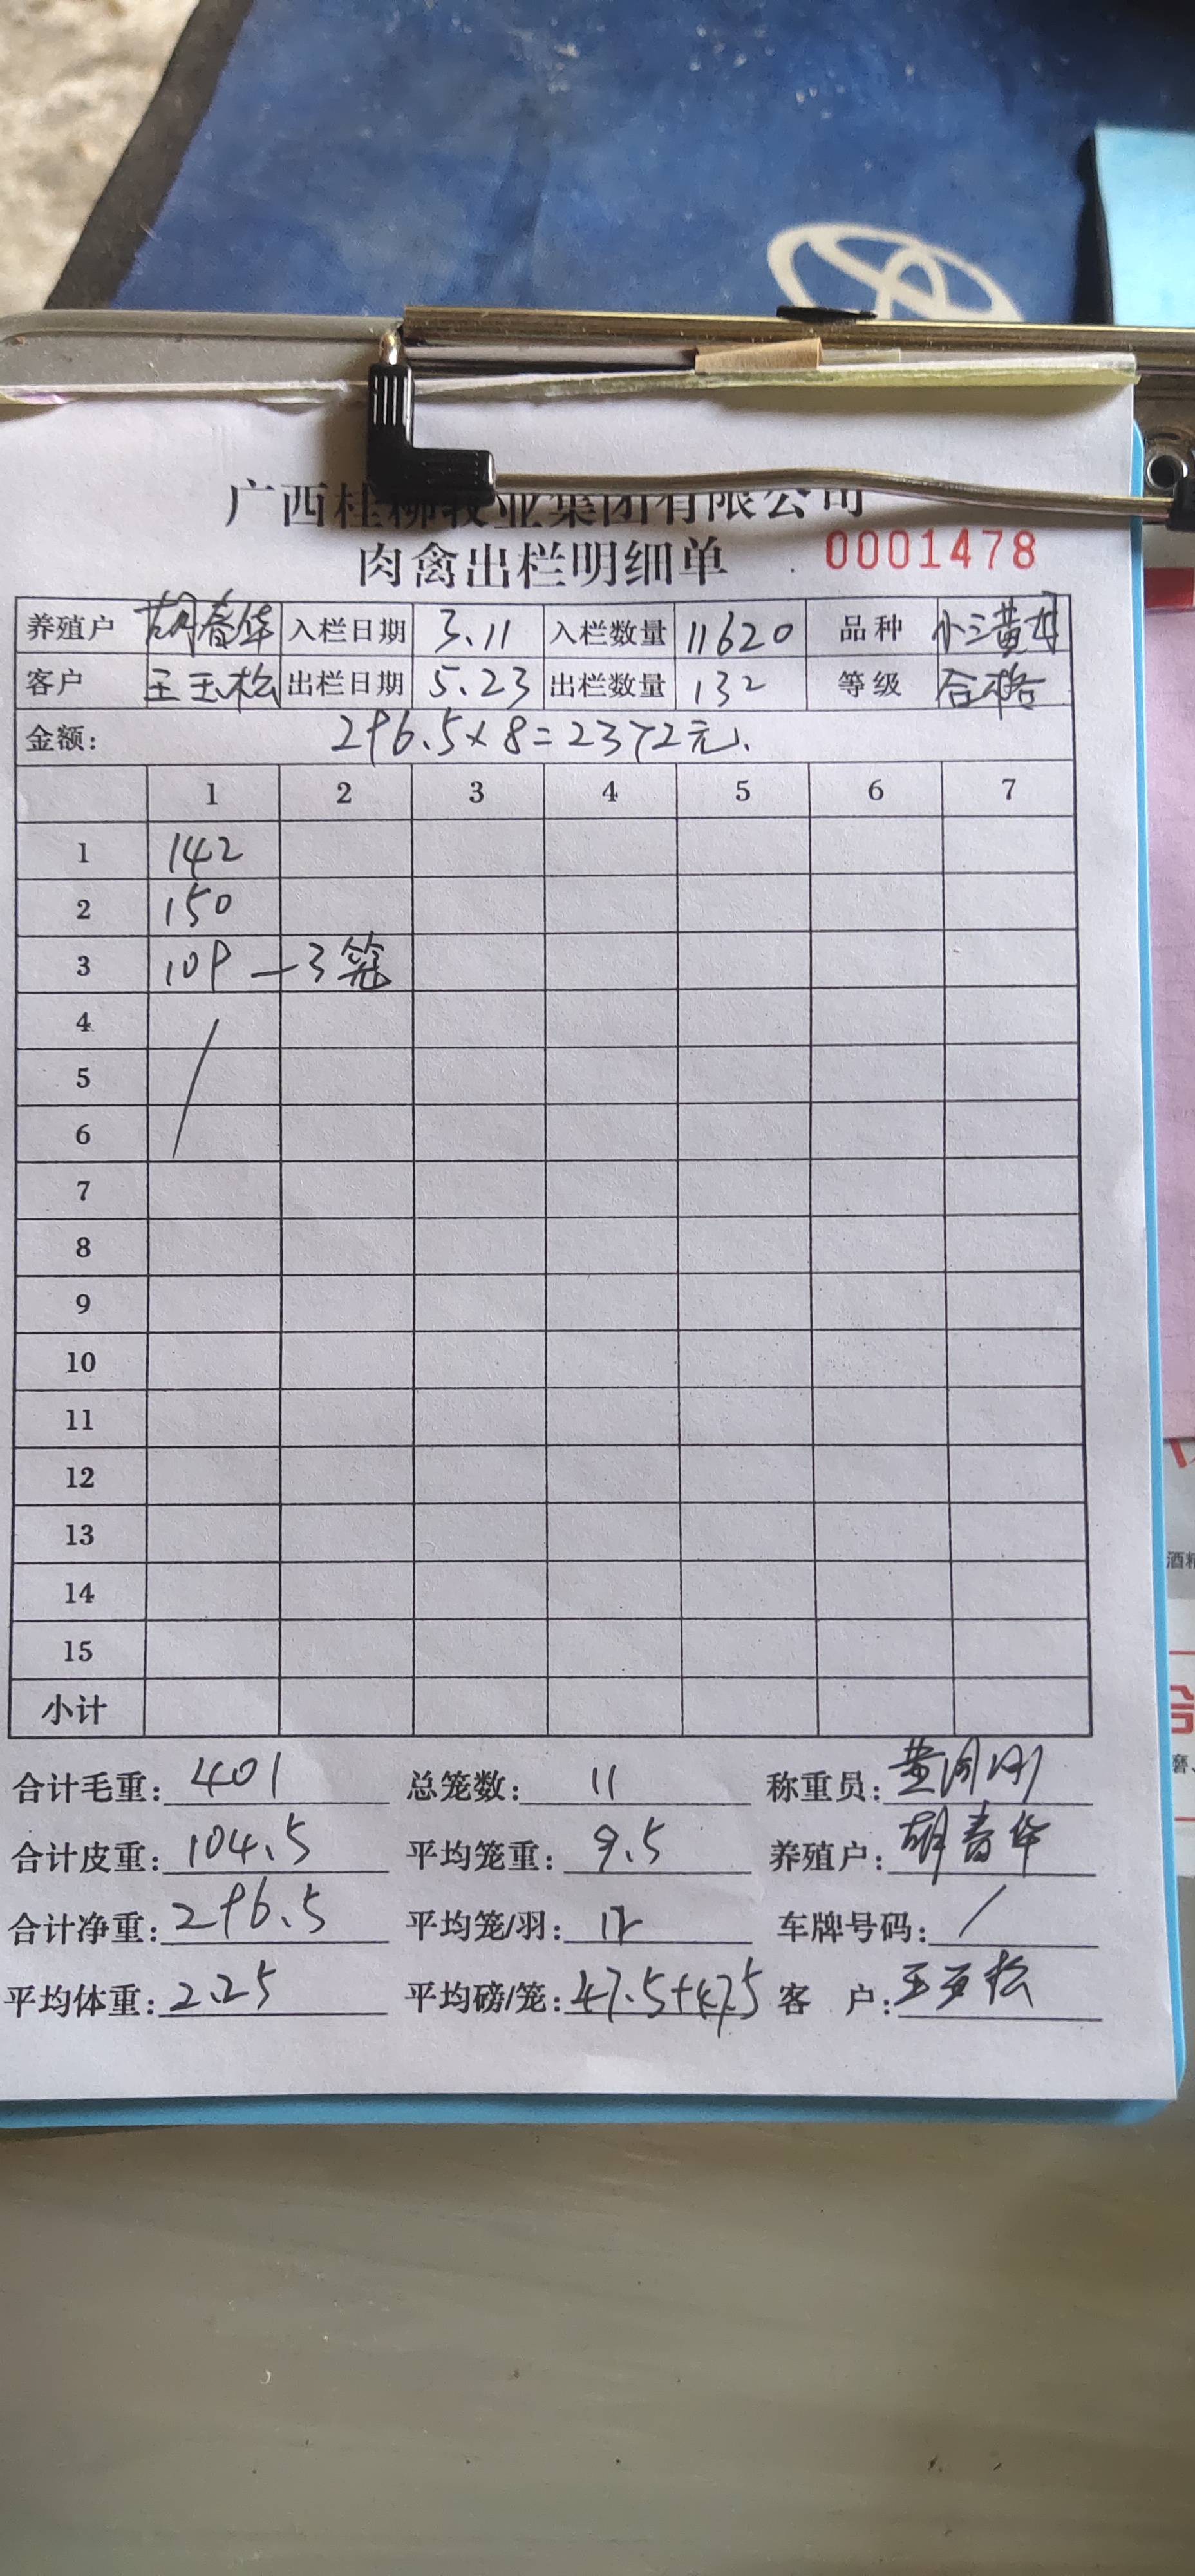 广西桂柳牧业集团有限公司
肉禽出栏明细单 0001478
养殖户 胡春华 入栏日期 3.11 入栏数量 11620 品种 小三黄母
客户 王玉松 出栏日期 5.23 出栏数量 132 等级 合格
金额: 296.5×8=2372元.
1 2 3 4 5 6 7
1 142
2 150
3 109 —3笼
4
5
6
7
8
9
10
11
12
13
14
15
小计
合计毛重: 401 总笼数: 11 称重员:
合计皮重: 104.5 平均笼重: 9.5 养殖户: 胡春华
合计净重: 296.5 平均笼/羽: 12 车牌号码: /
平均体重: 2.25 平均磅/笼: 47.5+47.5 客 户: 王玉松
酒精